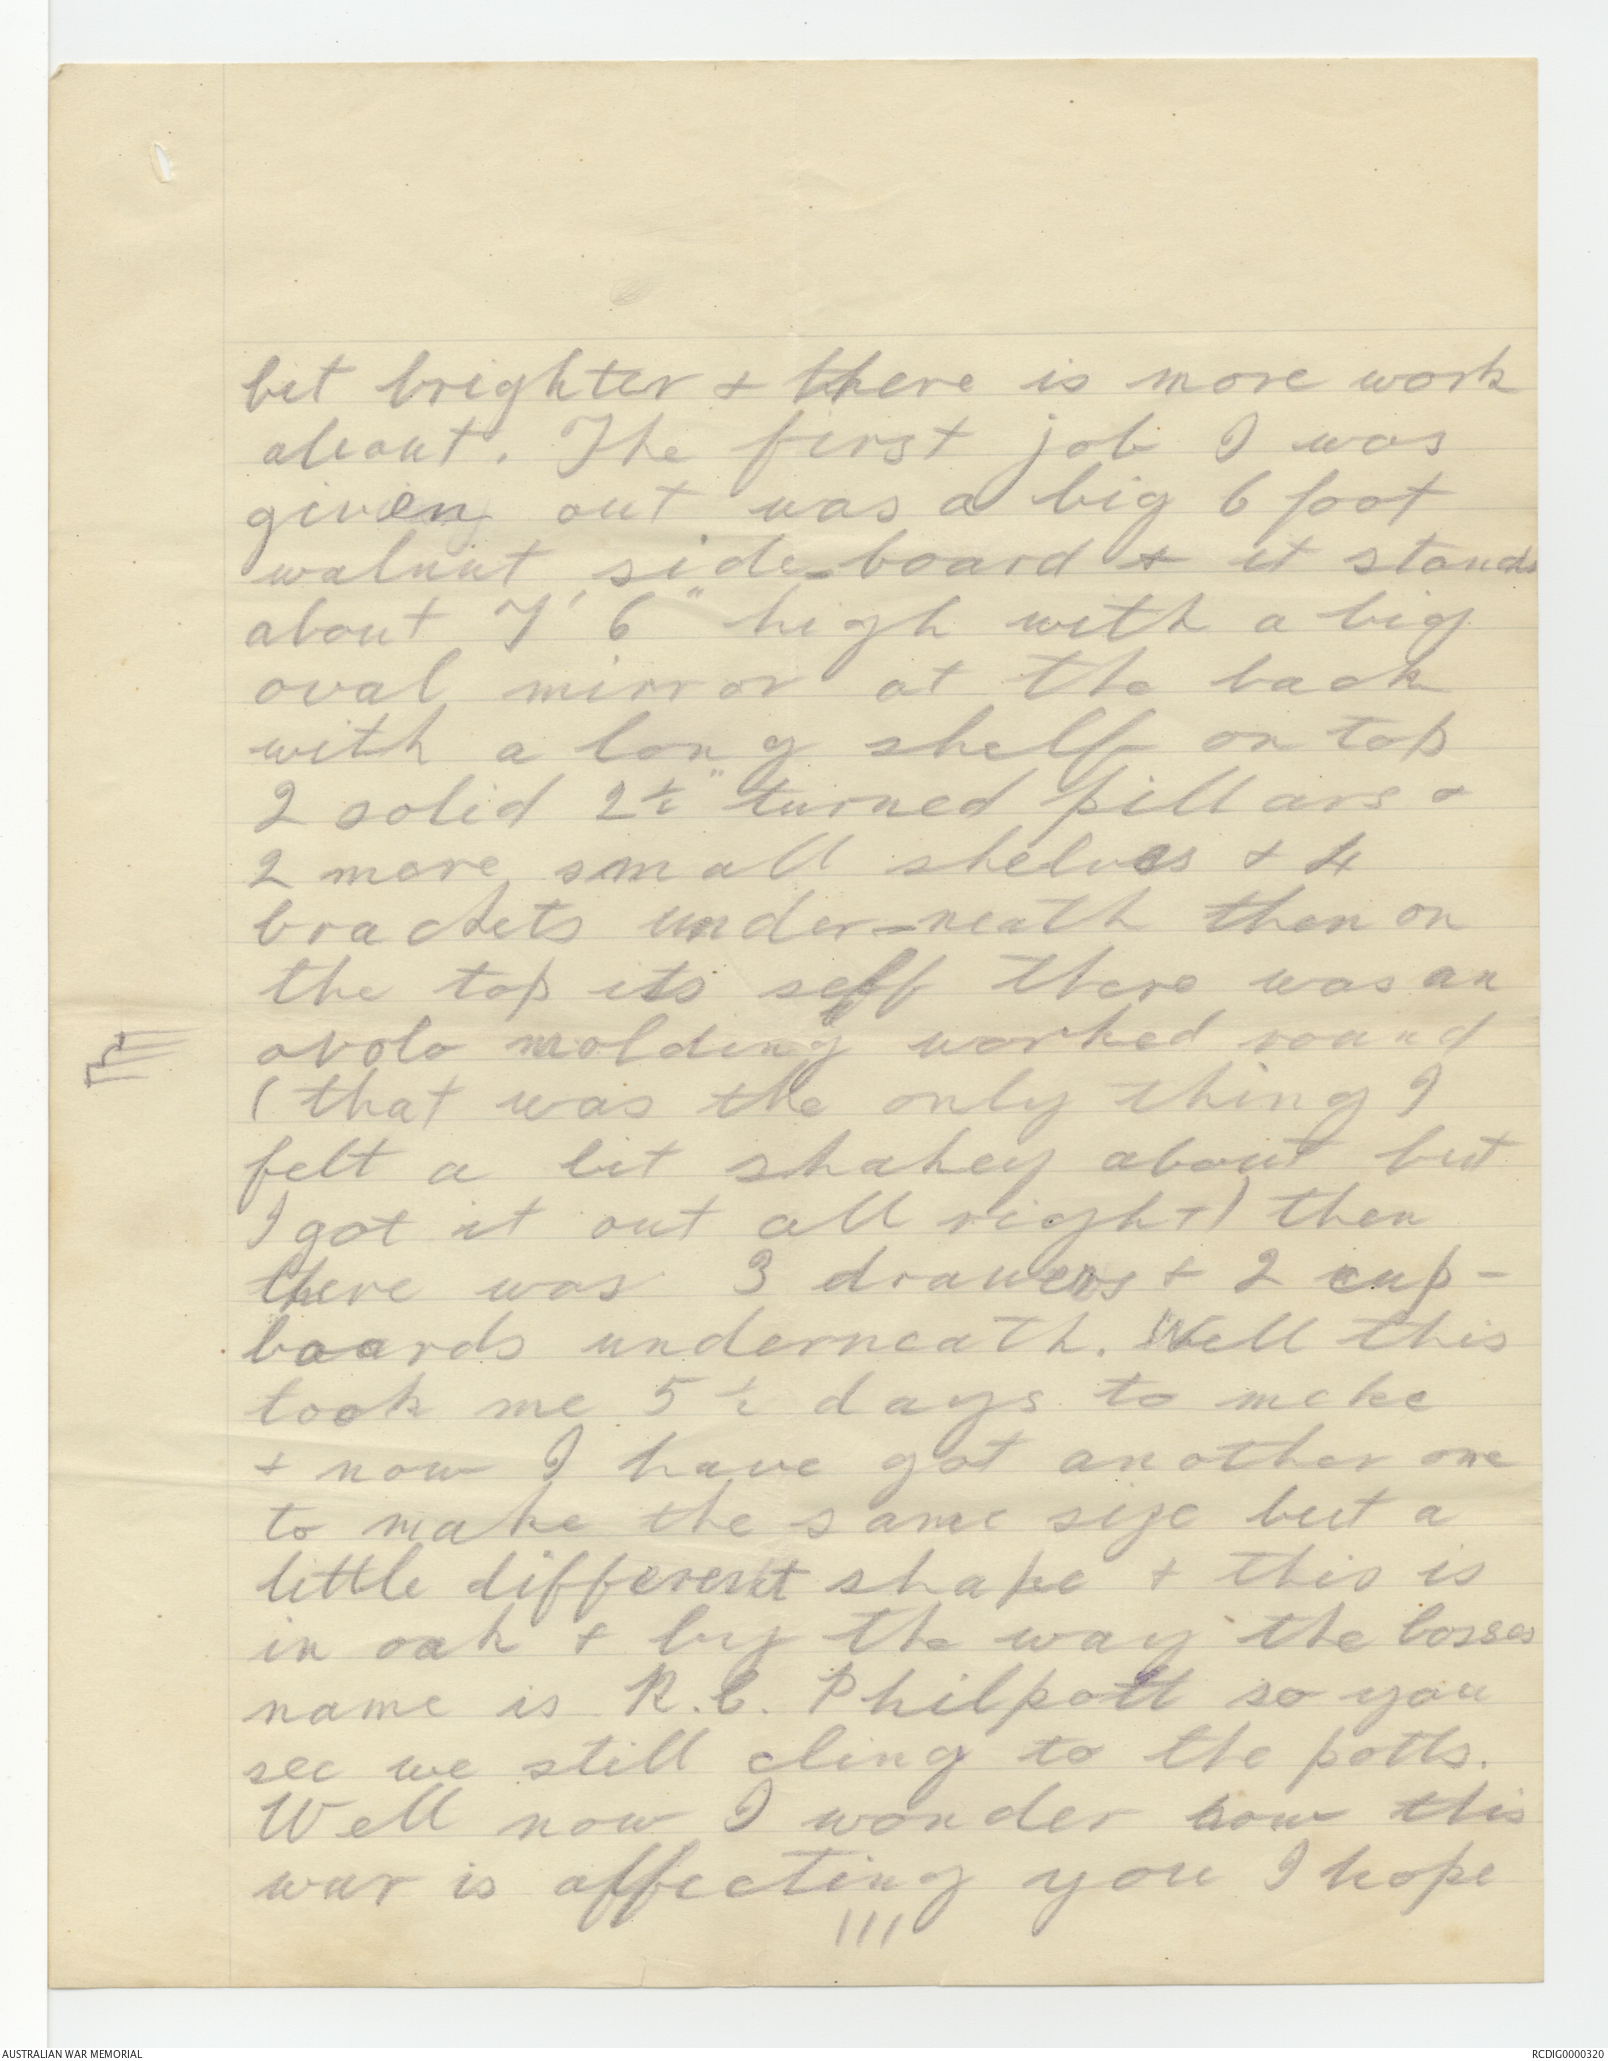 bit brighter & there is more work
about. The first job I was
given out was a big 6 foot
walnut side-board & it stands
about 7' 6" high with a big
oval mirror at the back
with a long shelf on top
2 solid 2½" turned pillars &
2 more small shelves & 4
brackets under-neath then on
the top its self there was an
ovolo molding worked round
(that was the only thing I
felt a bit shakey about but
I got it out all right) then
there was 3 drawers & 2 cup-
boards underneath. Well this
took me 5½ days to make
& now I have got another one
to make the same size but a
little different shape & this is
in oak & by the way the bosses
name is R.C. Philpott so you
see we still cling to the potts.
Well now I wonder how this
war is affecting you I hope
111
AUSTRALIAN WAR MEMORIAL
RCDIG0000320